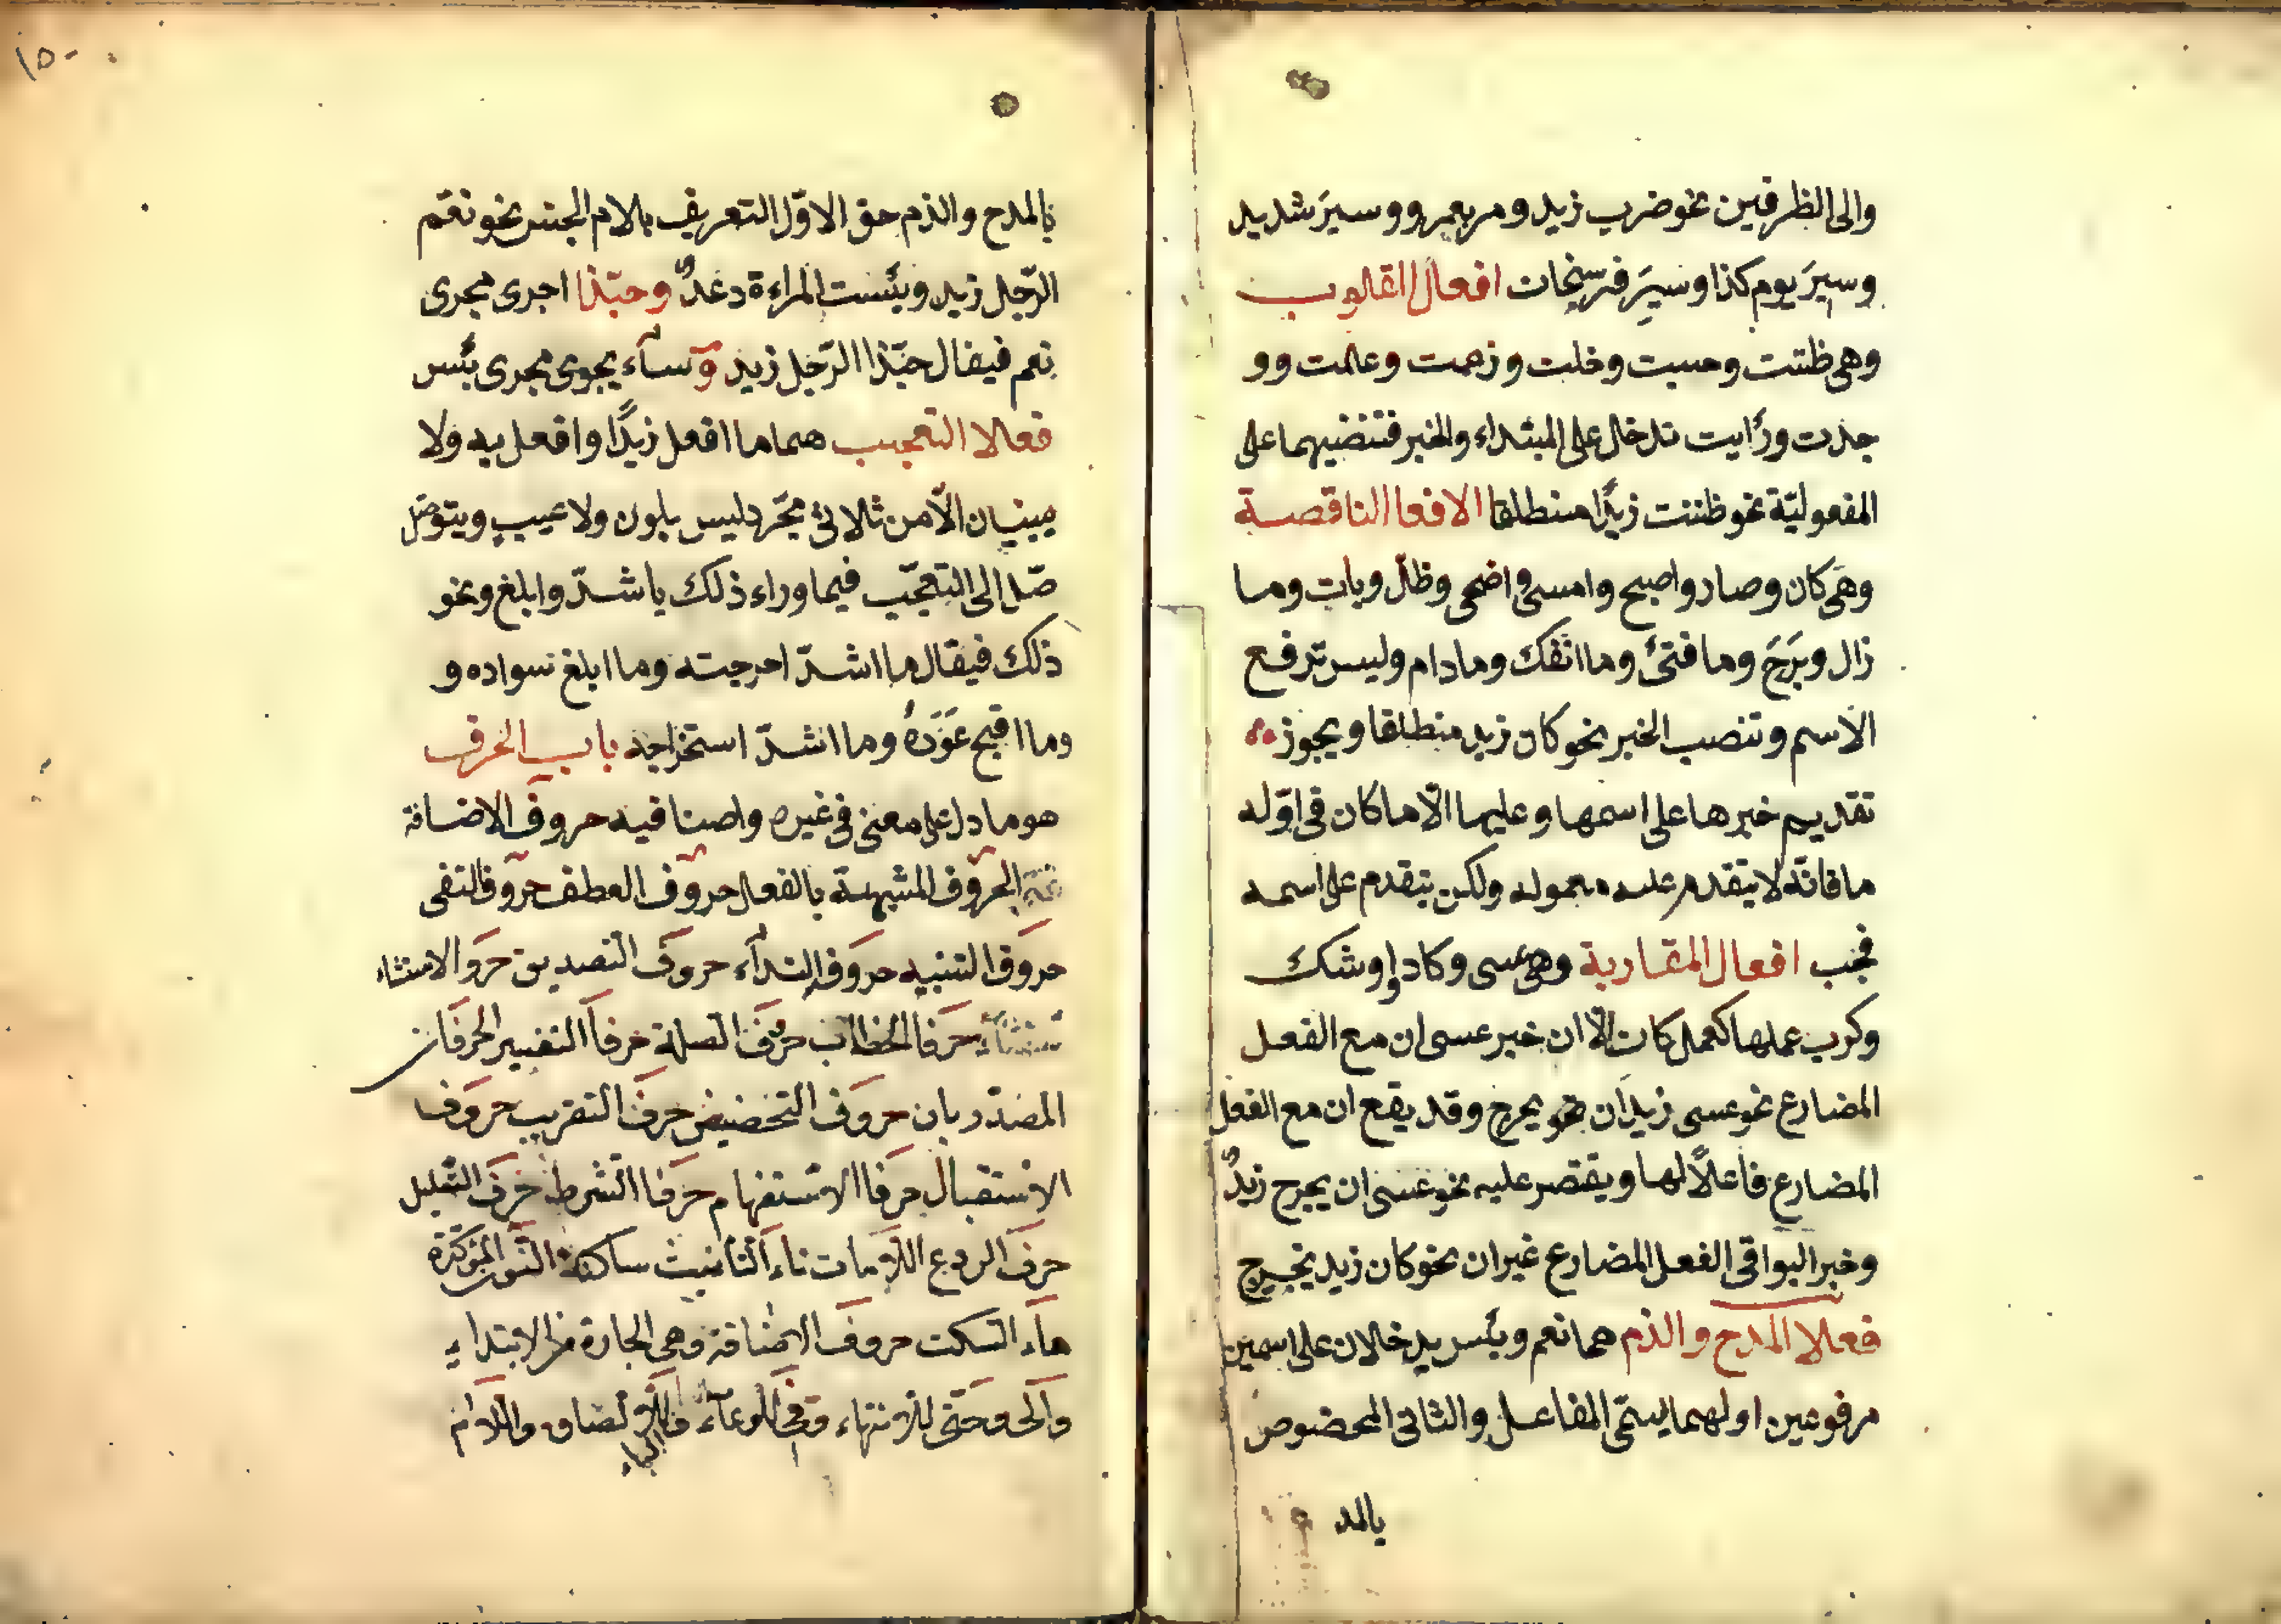 والى الظرفين نحو ضرب زيد ومر بعمرو وسيرَ شديد
وسيرَ يوم كذا وسيرَ فرسخان افعال القلوب
وهى ظننت وحسبت وخلت وزعمت وعلمت وو
جدت ورأيت تدخل على المبتداء والخبر فتنصبهما على
المفعوليّة نحو ظننت زيدًا منطلقا الافعا الناقصة
وهى كان وصار واصبح وامسى واضحى وظلّ وبات وما
زال وبَرَحَ وما فتئ وما انفكّ وما دام وليس ترفع
الاسم وتنصب الخبر نحو كان زيد منطلقا ويجوز
تقديم خبرها على اسمها وعليها الّا ما كان فى اوّله
ما فانّه لا يتقدم عليه معموله ولكن يتقدم على اسمه
فحسب افعال المقاربة وهى عسى وكاد واوشك
وكرب عملها كعمل كان الّا ان خبر عسى ان مع الفعل
المضارع نحو عسى زيد ان يخرج وقد يقع ان مع الفعل
المضارع فاعلًا لها ويقتصر عليه نحو عسى ان يخرج زيدٌ
وخبر البواقى الفعل المضارع غير ان نحو كان زيد يخرج
فعلا المدح والذم هما نعم وبئس يدخلان على اسمين
مرفوعين اولهما يسمّى الفاعل والثانى المخصوص
بالمد
١٥٠
بالمدح والذم حق الاوّل التعريف بلام الجنس نحو نعم
الرّجل زيد وبئست المراءة دعدٌ وحبّذا اجرى مجرى
نعم فيقال حبّذا الرّجل زيد وسآء يجرى مجرى بئس
فعلا التعجب هما ما افعل زيدًا وافعل به ولا
يبنيان الّا من ثلاثىّ مجرّد ليس بلون ولا عيب ويتوصّل
صّل الى التعجّب فيما وراء ذلك باشدّ وابلغ ونحو
ذلك فيقال ما اشدّ احرجته وما ابلغ سواده و
وما اقبح عَوَرَهُ وما اشدّ استخراجه باب الحرف
هو ما دل على معنى فى غيره واصنافه حروف الاضافة
الحروف المشبهة بالفعل حروف العطف حروف النفى
حروف التنبيه حروف النّدآء حروف التصديق حروالاستثناء
حرفا الخطاب حرف الصلة حرفا التفسير الحرفان
المصدّريان حروف التحضيض حرف التقريب حروف
الاستقبال حرفا الاستفهام حرفا الشرط حرف التّعليل
حرف الردع اللّامات تاء التأنيث ساكنة النّون المؤكّدة
هاء السكت حروف الاضافة وهى الجارة من للابتداء
والى وحتى للانتهاء وفى للوعآء والباء للالصاق واللام